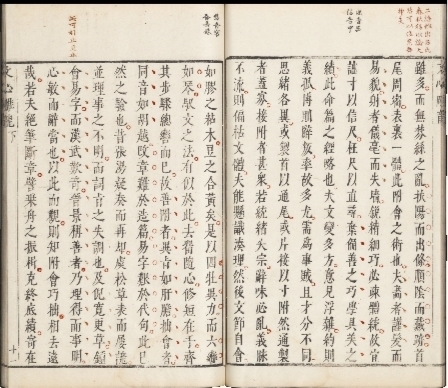 雖多而無棼絲之亂扶陽而出條順陰而藏跡首
尾周密表裏一體此附會之術也夫畫者謹髮而
易貌射者儀毫而失牆銳精細巧必疎體統故宜
詘寸以信尺枉尺以直尋棄偏善之巧學具美之
績此命篇之經略也夫文變多方意見浮雜約則
義孤博則辭叛率故多尤需爲事賊且才分不同
思緒各異或製首以通尾或片接以寸附然通製
者蓋寡接附者甚衆若統緒失宗辭味必亂義脉
不流則偏枯文體夫能懸識湊理然後文節自會
如膠之粘木豆之合黃矣是以四牡異力而六轡
如琴馭文之法有似於此去留隨心修短在手齊
其步驟總轡而已故善附者異旨如肝膽拙會者
同音如胡越改章難於造篇易字艱於代句此已
然之驗也昔張湯疑奏而再却虞松草表而屢譴
並理事之不明而詞旨之失調也及倪寬更草鍾
會易字而漢武歎奇晉景稱善者乃理得而事明
心敏而辭當也以此而觀則知附會巧拙相去遠
哉若夫絕筆斷章譬乘舟之振楫克終底績寄在
文心雕龍下